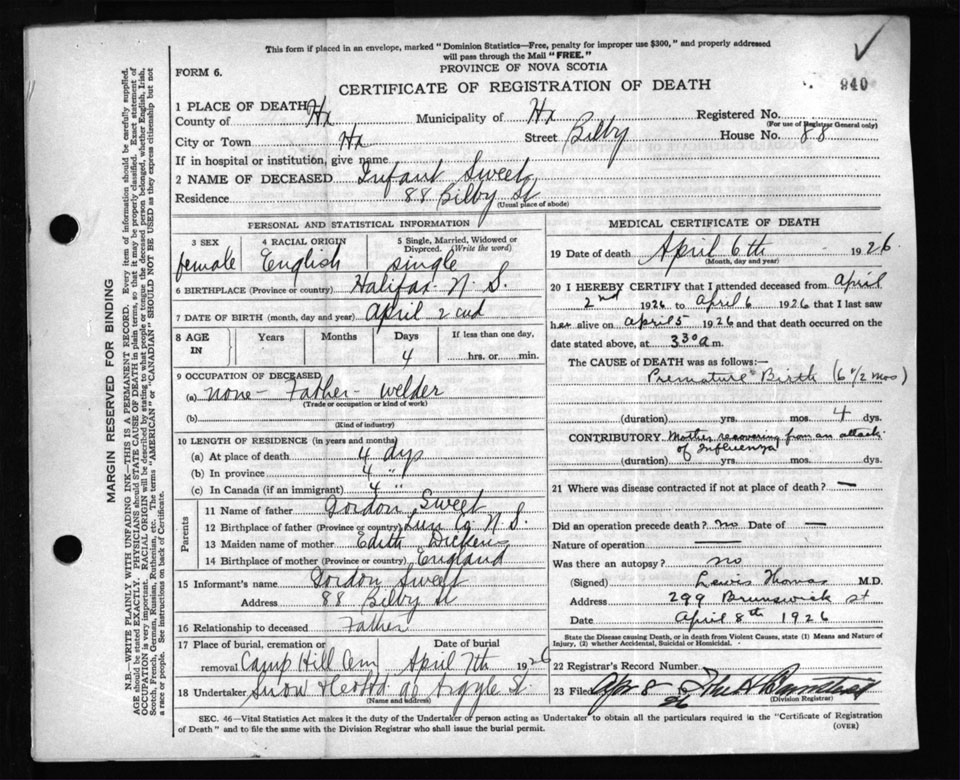 This form if placed in an envelope, marked "Dominion Statistics—Free, penalty for improper use $300," and properly addressed
will pass through the Mail "FREE."
PROVINCE OF NOVA SCOTIA
FORM 6.
CERTIFICATE OF REGISTRATION OF DEATH
940
1 PLACE OF DEATH
County of Hx Municipality of Hx Registered No.
(For use of Registrar General only)
City or Town Hx Street Bilby House No. 88
If in hospital or institution, give name
2 NAME OF DECEASED Infant Sweet
Residence 88 Bilby St
(Usual place of abode)
PERSONAL AND STATISTICAL INFORMATION
3 SEX 4 RACIAL ORIGIN 5 Single, Married, Widowed or Divorced. (Write the word)
female English single
6 BIRTHPLACE (Province or country) Halifax N. S.
7 DATE OF BIRTH (month, day and year) April 2
8 AGE IN Years Months Days If less than one day,
4 hrs. or min.
9 OCCUPATION OF DECEASED
(a) none - Father - welder
(Trade or occupation or kind of work)
(b)
(Kind of industry)
10 LENGTH OF RESIDENCE (in years and months)
(a) At place of death 4 dys
(b) In province 4 "
(c) In Canada (if an immigrant) 4 "
Parents
11 Name of father Gordon Sweet
12 Birthplace of father (Province or country) Lun Co N. S.
13 Maiden name of mother Edith Dickens
14 Birthplace of mother (Province or country) England
15 Informant's name Gordon Sweet
Address 88 Bilby St
16 Relationship to deceased Father
17 Place of burial, cremation or removal Date of burial
Camp Hill Cem April 7th 1926
18 Undertaker Snow & Co Ltd Argyle St
(Name and address)
MEDICAL CERTIFICATE OF DEATH
19 Date of death April 6th 1926
(Month, day and year)
20 I HEREBY CERTIFY that I attended deceased from April
2nd 1926 to April 6 1926 that I last saw
her alive on April 5 1926 and that death occurred on
date stated above, at 3 30 a m.
The CAUSE of DEATH was as follows:—
Premature Birth (6 1/2 mos)
(duration) yrs. mos. 4 dys.
CONTRIBUTORY Mother recovering from an attack
of Influenza
(duration) yrs. mos. dys.
21 Where was disease contracted if not at place of death? —
Did an operation precede death? no Date of —
Nature of operation —
Was there an autopsy? no
(Signed) Lewis Thomas M.D.
Address 299 Brunswick st
Date April 8th 1926
State the Disease causing Death, or in death from Violent Causes, state (1) Means and Nature of
Injury, (2) whether Accidental, Suicidal or Homicidal.
22 Registrar's Record Number
23 Filed Apr 8 1926
(Division Registrar)
SEC. 46—Vital Statistics Act makes it the duty of the Undertaker or person acting as Undertaker to obtain all the particulars required in the "Certificate of Registration
of Death" and to file the same with the Division Registrar who shall issue the burial permit.
(OVER)
MARGIN RESERVED FOR BINDING
N.B.—WRITE PLAINLY WITH UNFADING INK—THIS IS A PERMANENT RECORD. Every item of information should be carefully supplied.
AGE should be stated EXACTLY. PHYSICIANS should STATE CAUSE OF DEATH in plain terms, so that it may be properly classified. Exact statement of
OCCUPATION is very important. RACIAL ORIGIN will be described by stating to what people or tongue the deceased person belonged, whether English, Irish,
Scotch, French, German, Russian, Ruthenian, etc. The terms "AMERICAN" or "CANADIAN" SHOULD NOT BE USED as they express citizenship but not
a race or people. See instructions on back of Certificate.